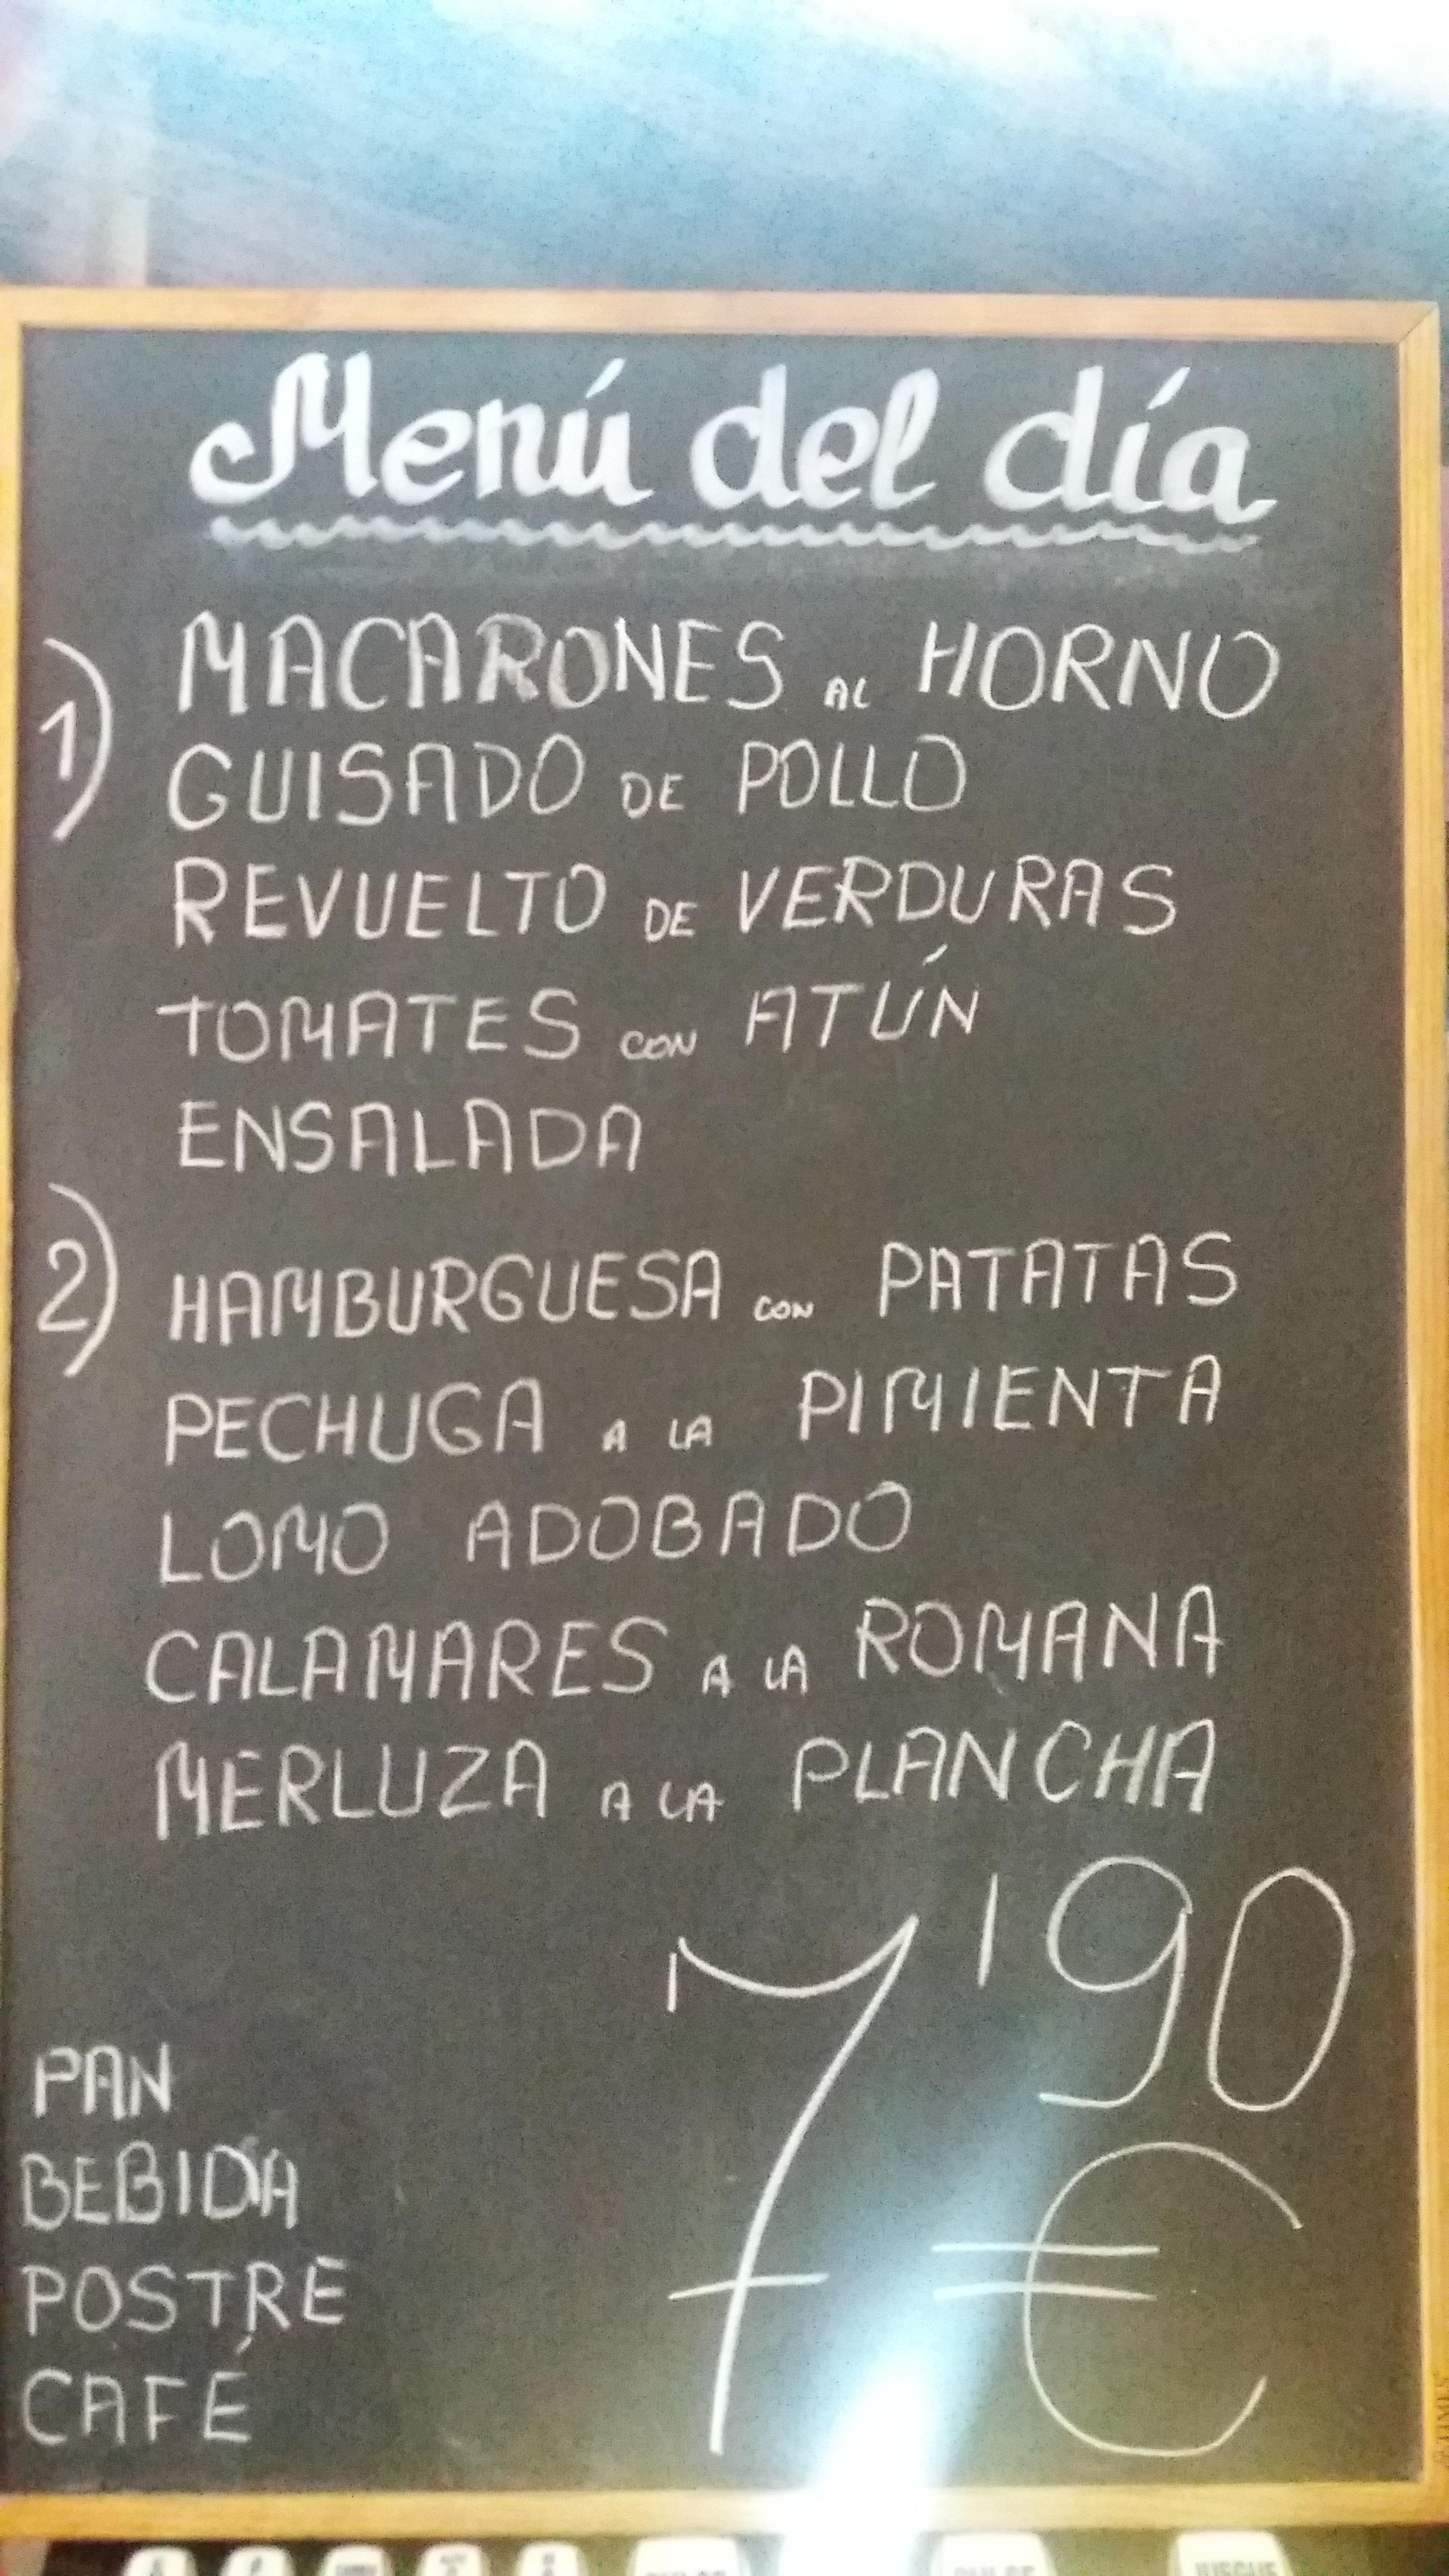 Menú del día
1) MACARONES AL HORNO
GUISADO DE POLLO
REVUELTO DE VERDURAS
TOMATES CON ATÚN
ENSALADA
2) HAMBURGUESA CON PATATAS
PECHUGA A LA PIMIENTA
LOMO ADOBADO
CALAMARES A LA ROMANA
MERLUZA A LA PLANCHA
7'90
€
PAN
BEBIDA
POSTRE
CAFÉ